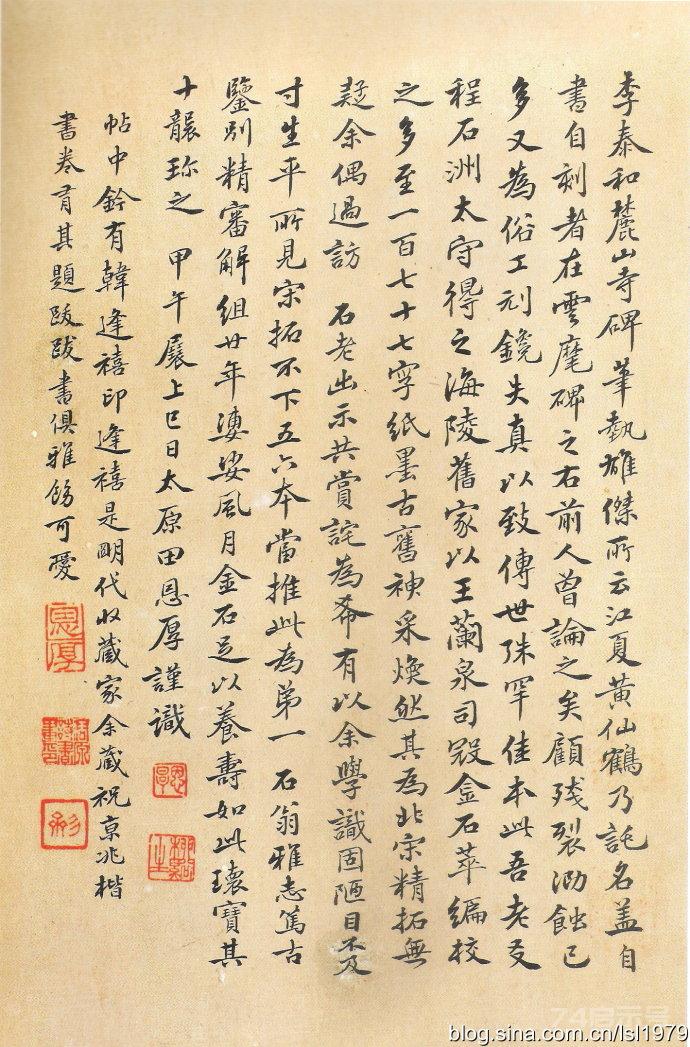 李泰和麓山寺碑筆執雄傑所云江夏黃仙鶴乃託名盖自
書自刻者在雲麾碑之右前人曾論之矣顧殘裂泐蝕已
多又為俗工刓鑱失真以致傳世殊罕佳本此吾老友
程石洲太守得之海陵舊家以王蘭泉司寇金石萃編校
之多至一百七十七字紙墨古舊神采煥然其為北宋精拓無
疑余偶過訪 石老出示共賞詫為希有以余學識固陋目不及
寸生平所見宋拓不下五六本當推此為弟一 石翁雅志篤古
鑒別精審解組廿年婆娑風月金石足以養壽如此瓌寶其
十襲珎之 甲午展上巳日太原田恩厚謹識
帖中鈐有韓逢禧印逢禧是明代收藏家余藏祝京兆楷
書卷有其題跋跋書俱雅飭可愛
blog.sina.com.cn/lsl1979